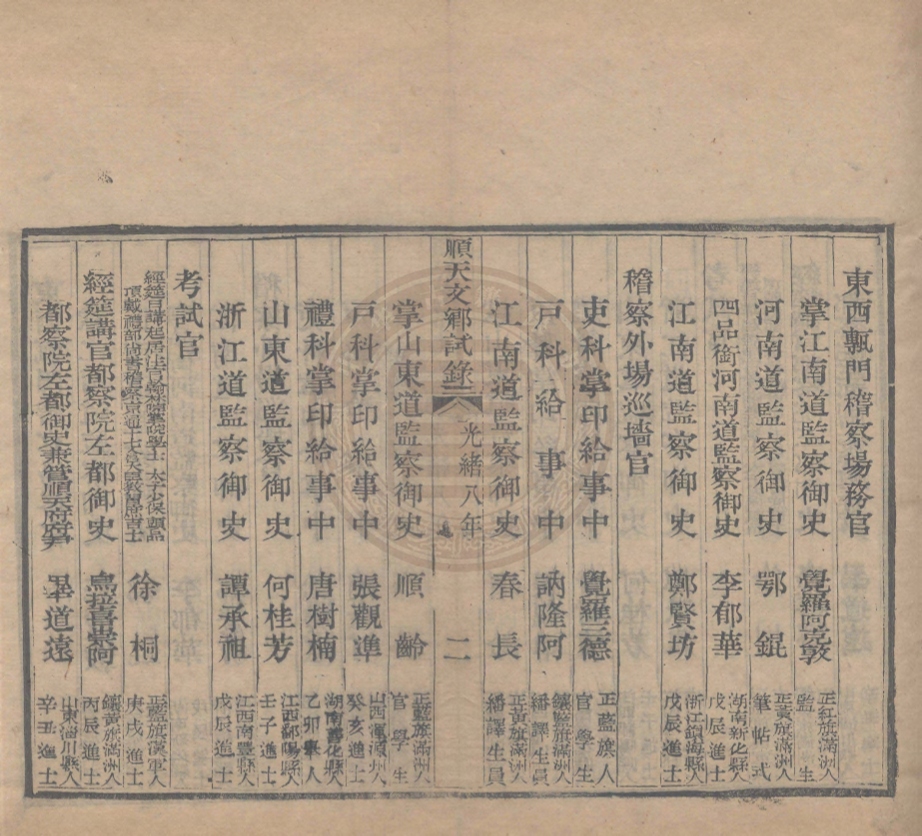 東西甎門稽察場務官
掌江南道監察御史 覺羅阿克敦 正紅旗滿洲人 監生
河南道監察御史 鄂錕 正黃旗滿洲人 筆帖式
四品銜河南道監察御史 李郁華 湖南新化縣人 戊辰進士
江南道監察御史 鄭賢坊 浙江鎮海縣人 戊辰進士
稽察外場巡墻官
吏科掌印給事中 覺羅 德 正藍旗人 官學生
戸科給事中 訥隆阿 鑲藍旗滿洲人 繙譯生員
江南道監察御史 春長 正黃旗滿洲人 繙譯生員
順天文鄉試錄 光緒八年 二
掌山東道監察御史 順齡 正藍旗滿洲人 官學生
戸科掌印給事中 張觀準 山西渾源州人 癸亥進士
禮科掌印給事中 唐樹楠 湖南善化縣人 乙卯舉人
山東道監察御史 何桂芳 江西鄱陽縣人 壬子進士
浙江道監察御史 譚承祖 江西南豐縣人 戊辰進士
考試官
經筵日講起居注官翰林院掌院學士 太子少保頭品頂戴禮部尚書稽察京通十七倉大臣教習庶吉士 徐桐 正藍旗漢軍人 庚戌進士
經筵講官都察院左都御史 烏拉喜崇阿 鑲黃旗滿洲人 丙辰進士
都察院左都御史兼管順天府府尹 畢道遠 山東淄川縣人 辛丑進士